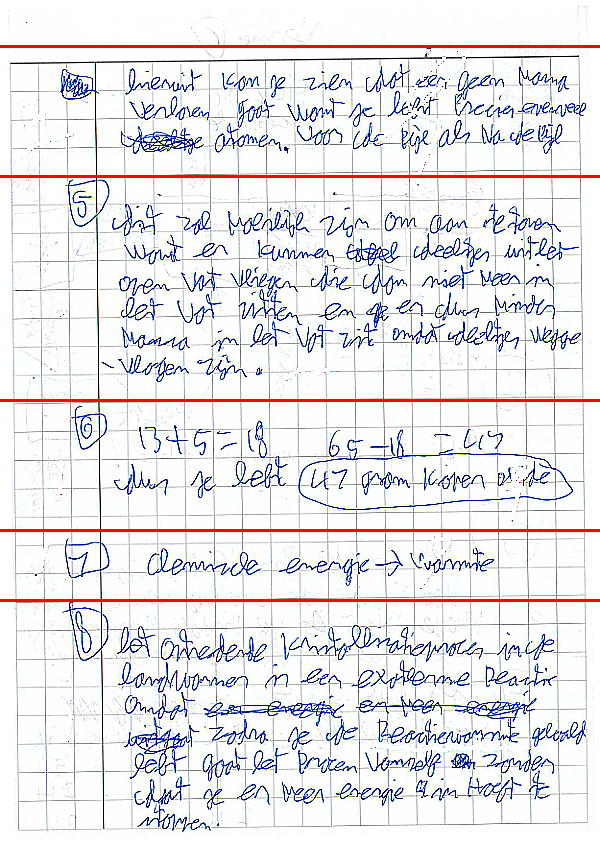 hieruit kan je zien dat er geen massa
verloren gaat want je hebt precies evenveel
atomen. voor de pijl als na de pijl
5
dit zal moeilijk zijn om aan te tonen
want er kunnen deeltjes uit het
open vat vliegen die dan niet meer in
het vat zitten en er dus minder
massa in het vat zit omdat deeltjes wegge
-vlogen zijn.
6
13+5=18 65-18 =47
dus je hebt 47 gram koper oxide
7 Chemische energie → warmte
8
het ontstaan kristallisatieproces in de
handwarmer is een exotherme reactie
omdat een energie er meer energie
uitgaat zodra je de reactiewarmte gehaald
hebt gaat het proces vanzelf zonder
dat je er meer energie in hoeft te
stoppen.